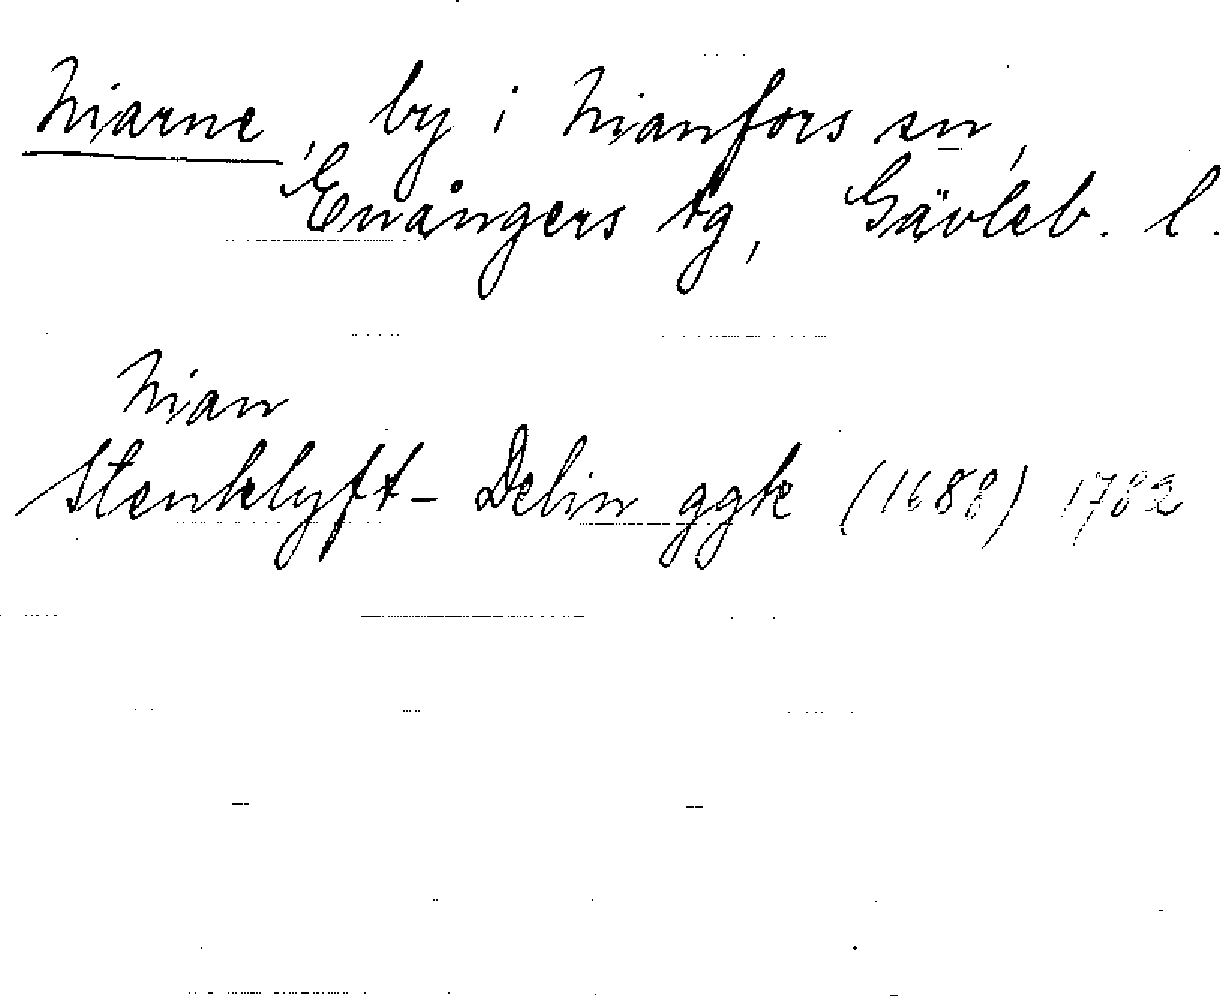 Niarne, by i Nianfors sn,
Enångers tg, Gävleb. l.
Nian
Stenklyft- Delin ggk (1688) 1782